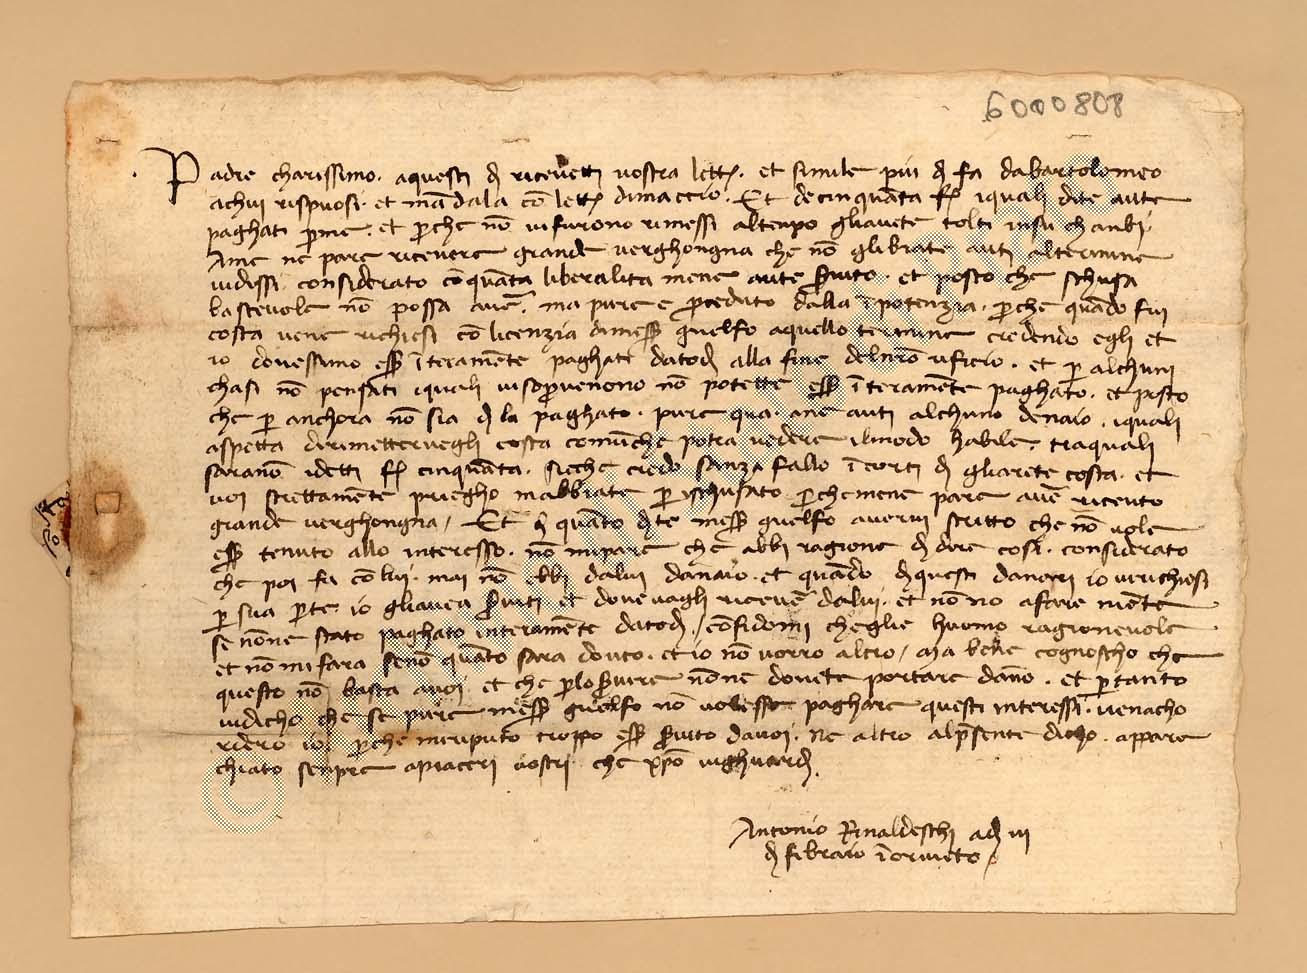 6000808
Padre charissimo. aquesti dì ricevetti vostra lettera. et simile più dì fa da bartolomeo
achui rispuosi. et mādala cō lettera dimaccio. Et de cinquāta fl iquali dite avete
paghati p̄me. et p̄che nō vi furono rimessi altenpo gliavete tolti insu chanbi.
Ame ne pare ricevere grande verghongna che nō glibiate auti altermine
vidissi. considerato cō quāta liberalita mene avete s̄vito. et posto che schusa
bastevole nō possa avē. ma pure e p̄ceduto dalla īpotenzia. p̄che quādo fui
costa vene richiesi cō licenzia dimess̄ guelfo aquello termine credendo egli et
io dovessimo ess̄ īteramēte paghati datodi alla fine delnr̄o uficio. et p̄ alchuni
chasi nō pensati iquali visop̄venono nō potette ess̄ īteramēte paghato. et posto
che p̄ anchora nō sia di la paghato. pure qua. ane auti alchuno denaio. iquali
aspetta dirimettervegli costa comūche potra vedere ilmodo habile. traquali
sarānō idetti fl cinquāta. siche credo sanza fallo ī corti dì gliarete costa. et
voi strettamēte priegho mabbiate p̄ ischusato p̄che mene pare avē ricevto
grande verghongna / Et quāto dite mess̄ guelfo avervi scritto che nō vole
ess̄ tenuto allo interesso. nō mi pare che abbi ragione di dire cosi. considerato
che poi fu cō lui. mai nō ebbi dalui danaio. et quādo di questi danari io verichiesi
p̄ sua p̄te io gliavea s̄viti et dovevagli ricevē dalui. et nō no afare niēte
se nōne stato paghato interamēte datodi / cōfidomi cheglie huomo ragionevole
et nō mi fara senō quāto sara dovto. et io nō vorro altro / Ma bene cognoscho che
questo nō basta avoi et che p̄lo s̄vire nōne dovete portare dāno. et p̄tanto
vidicho che se pure mess̄ guelfo nō volesse paghare questi interessi. venacho
rdero io. p̄che mi reputo troppo ess̄ s̄vito davoi. Ne altro alp̄sente dicho. appare
chiato senpre apiaceri vostri. che xp̄o vighuardi.
Antonio Rinaldeschi adi iii
di febraio ī orvieto /